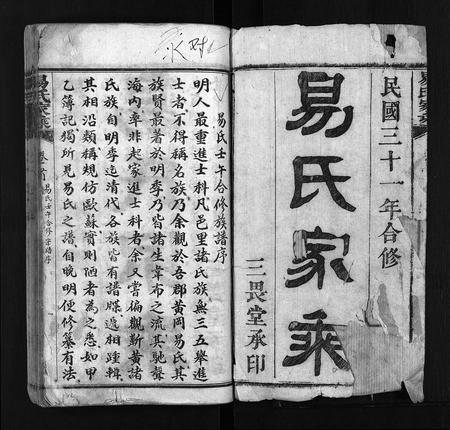 民國三十一年合修
易氏家乘
三畏堂承印
易氏壬午合修族譜序
明人最重進士科凡邑里諸氏族無三五舉進
士者不得稱名族乃余觀於吾郡黃岡易氏其
族賢最著於明季乃皆諸生韋布之流其馳聲
海內率非起家進士科者余又嘗徧觀新黃諸
氏族自明季迄清代各族皆有譜牒遞相踵輯
其相沿類稱規仿歐蘇實則陋者為之悉如甲
乙簿記獨所見易氏之譜自晚明便修纂有法
易氏家乘
卷首
易氏壬午合修宗譜序